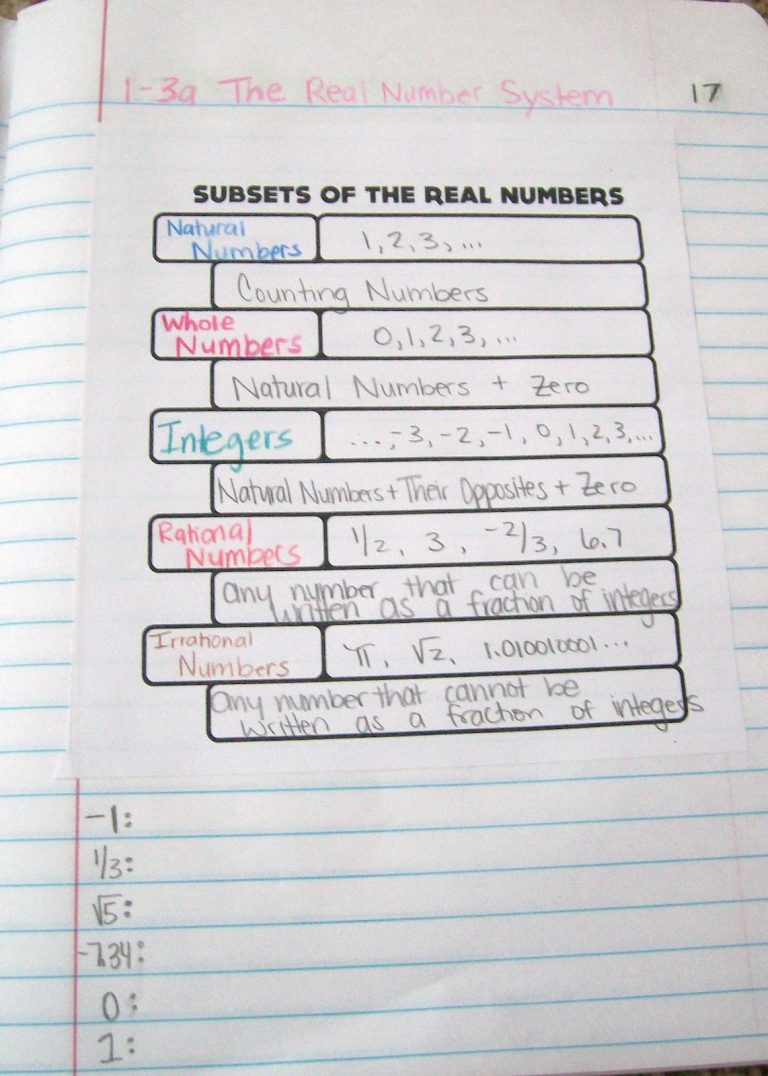 1-3a The Real Number System 17
SUBSETS OF THE REAL NUMBERS
Natural
Numbers
1, 2, 3, ...
Counting Numbers
Whole
Numbers
0, 1, 2, 3, ...
Natural Numbers + Zero
Integers
..., -3, -2, -1, 0, 1, 2, 3, ...
Natural Numbers + Their Opposites + Zero
Rational
Numbers
1/2, 3, -2/3, 6.7
any number that can be
written as a fraction of integers
Irrational
Numbers
π, √2, 1.010010001...
any number that cannot be
written as a fraction of integers
-1:
1/3:
√5:
-7.34:
0:
1: